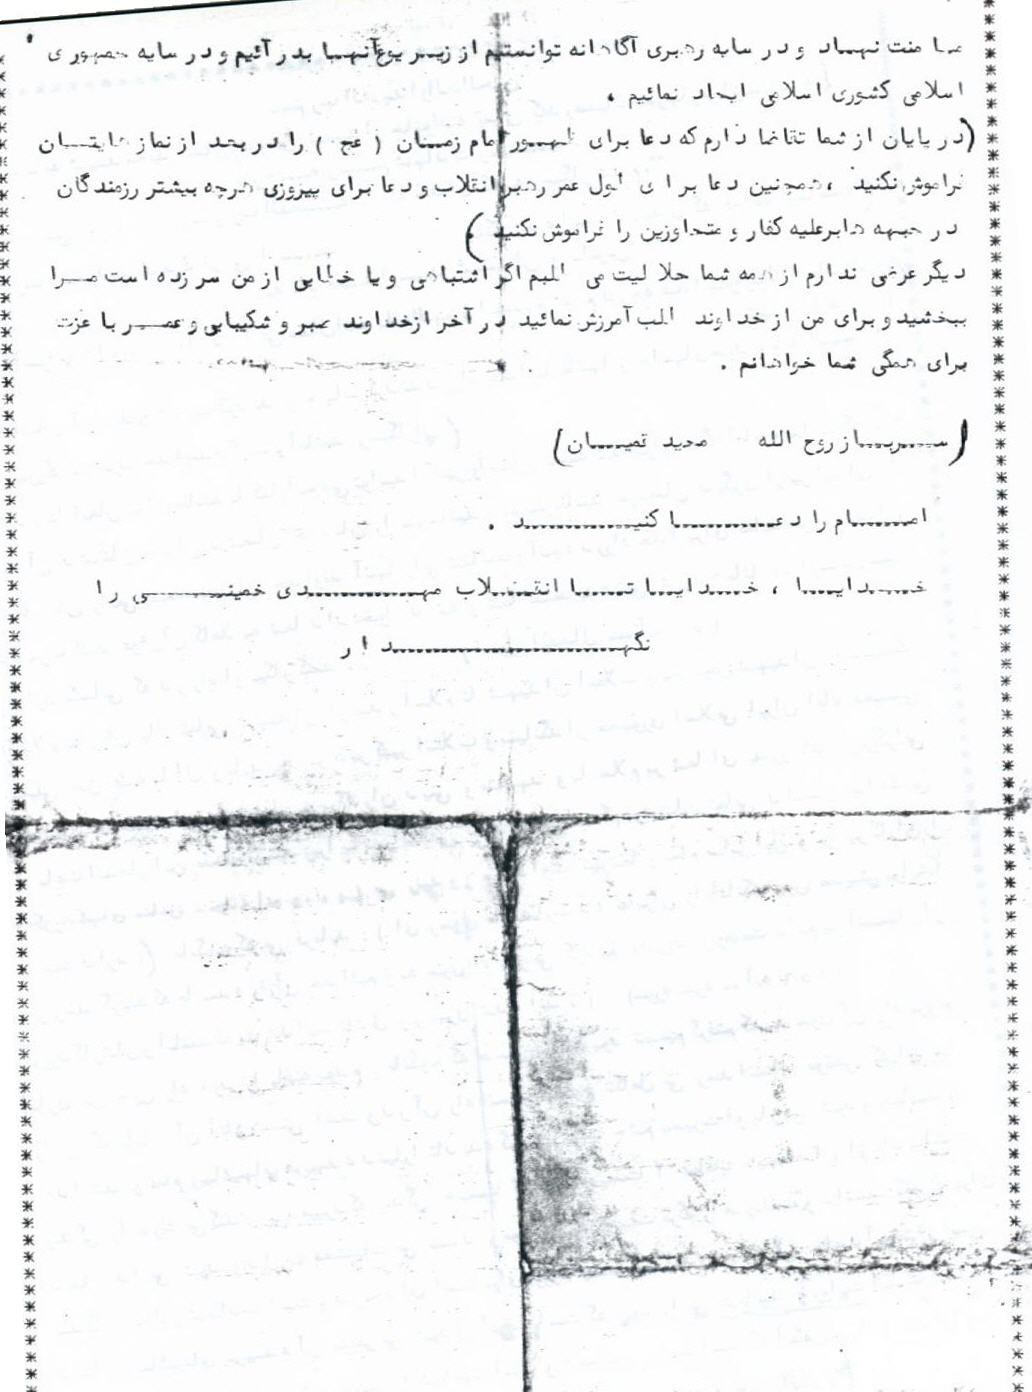 ما منت نهاد و در سایه رهبری آگاهانه توانستیم از زیر یوغ آنها بدر آئیم و در سایه جمهوری
اسلامی کشوری اسلامی ایجاد نمائیم ،
(در پایان از شما تقاضا دارم که دعا برای ظهور امام زمان ( عج ) را در بعد از نمازهایتان
فراموش نکنید ، همچنین دعا برای طول عمر رهبر انقلاب و دعا برای پیروزی هرچه بیشتر رزمندگان
در جبهه ها بر علیه کفار و متجاوزین را فراموش نکنید . )
دیگر عرضی ندارم از همه شما حلالیت می طلبم اگر اشتباهی و یا خطایی از من سر زده است مرا
ببخشید و برای من از خداوند طلب آمرزش نمائید در آخر از خداوند صبر و شکیبایی و عمر با عزت
برای همگی شما خواهانم .
(سرباز روح الله مجید نمیان)
امام را دعا کنید .
خدایا ، خدایا تا انقلاب مهدی خمینی را
نگهدار